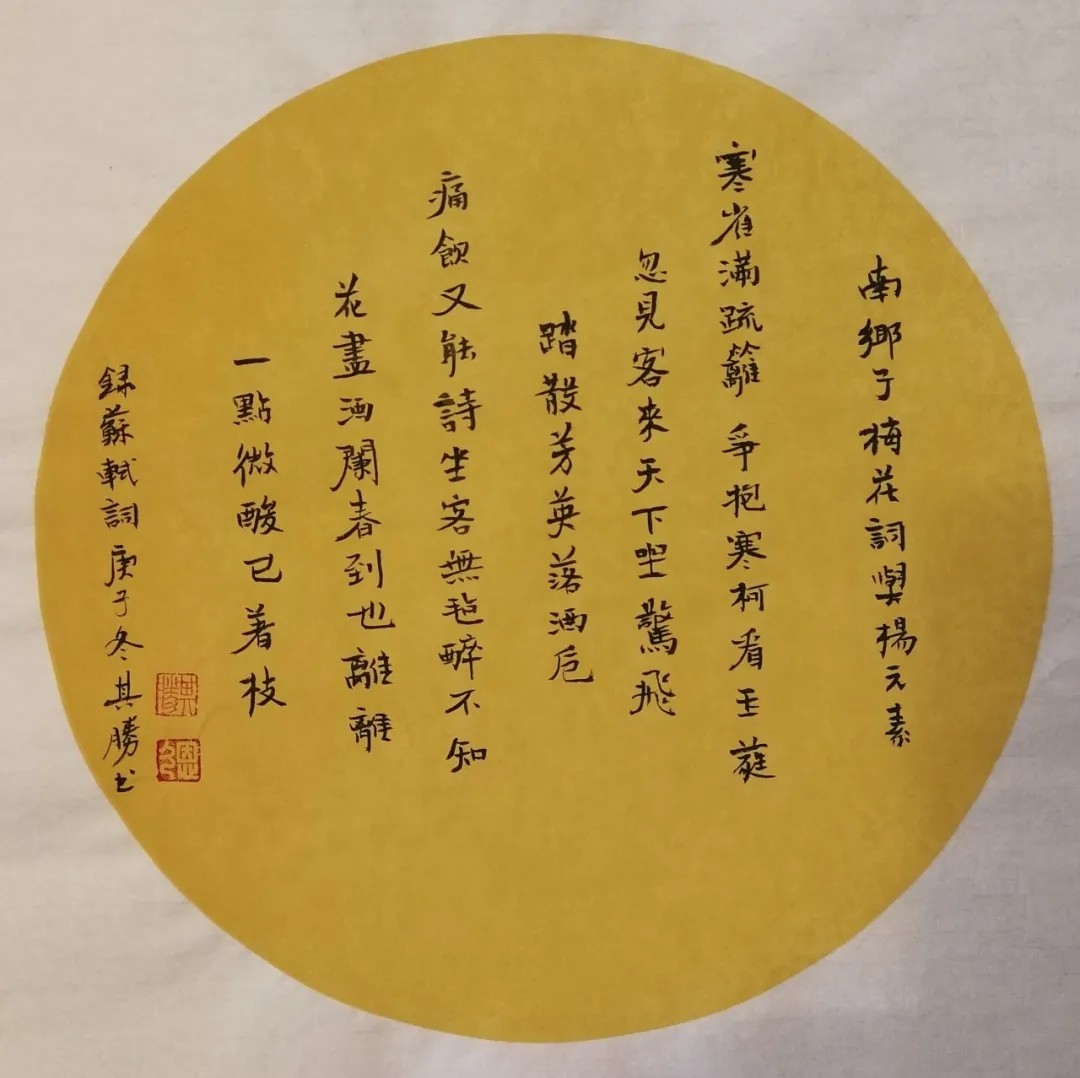 南鄉子梅花詞與楊元素
寒雀滿疏籬爭抱寒柯看玉蕤
忽見客來天下坐驚飛
踏散芳英落酒卮
痛飲又能詩坐客無毡醉不知
花盡酒闌春到也離離
一點微酸已著枝
録蘇軾詞庚子冬其勝书